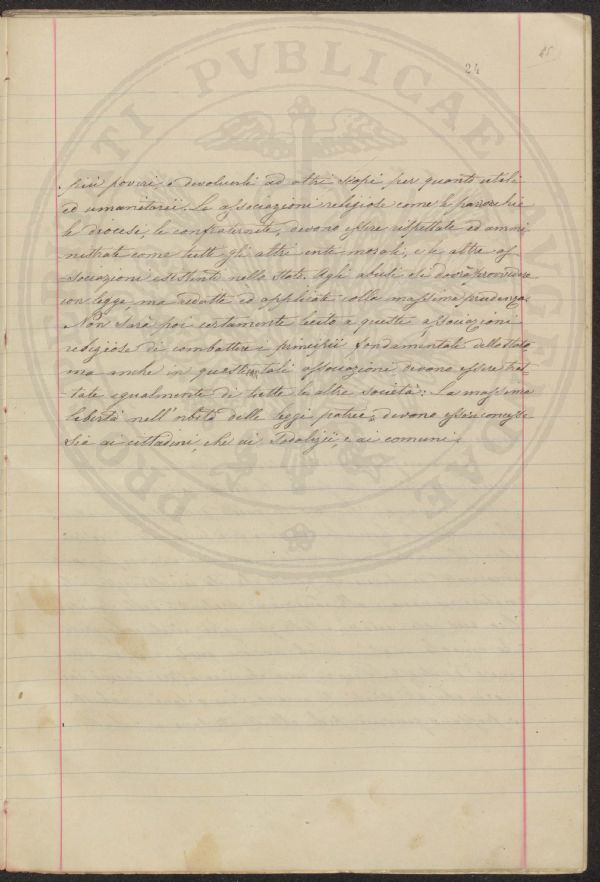 45
24
più poveri, o devolverli ad altri scopi per quanto utili
ed umanitarii. Le associazioni religiose come le parrocchie
le diocesi, le confraternite, devono essere rispettate ed ammi
nistrate come tutti gli altri enti morali, e le altre as
-sociazioni esistenti nello Stato. Agli abusi si dovrà provvedere
con leggi ma redatte ed applicate colla massima prudenza.
Non sarà poi certamente lecito a queste associazioni
religiose di combattere i principii fondamentali dello Stato
ma anche in questo tali associazioni devono essere trat
-tate egualmente di tutte le altre società: La massima
libertà nell'orbita delle leggi patrie, devono essere concesse
sia ai cittadini, che ai Sodalizii, e ai comuni.